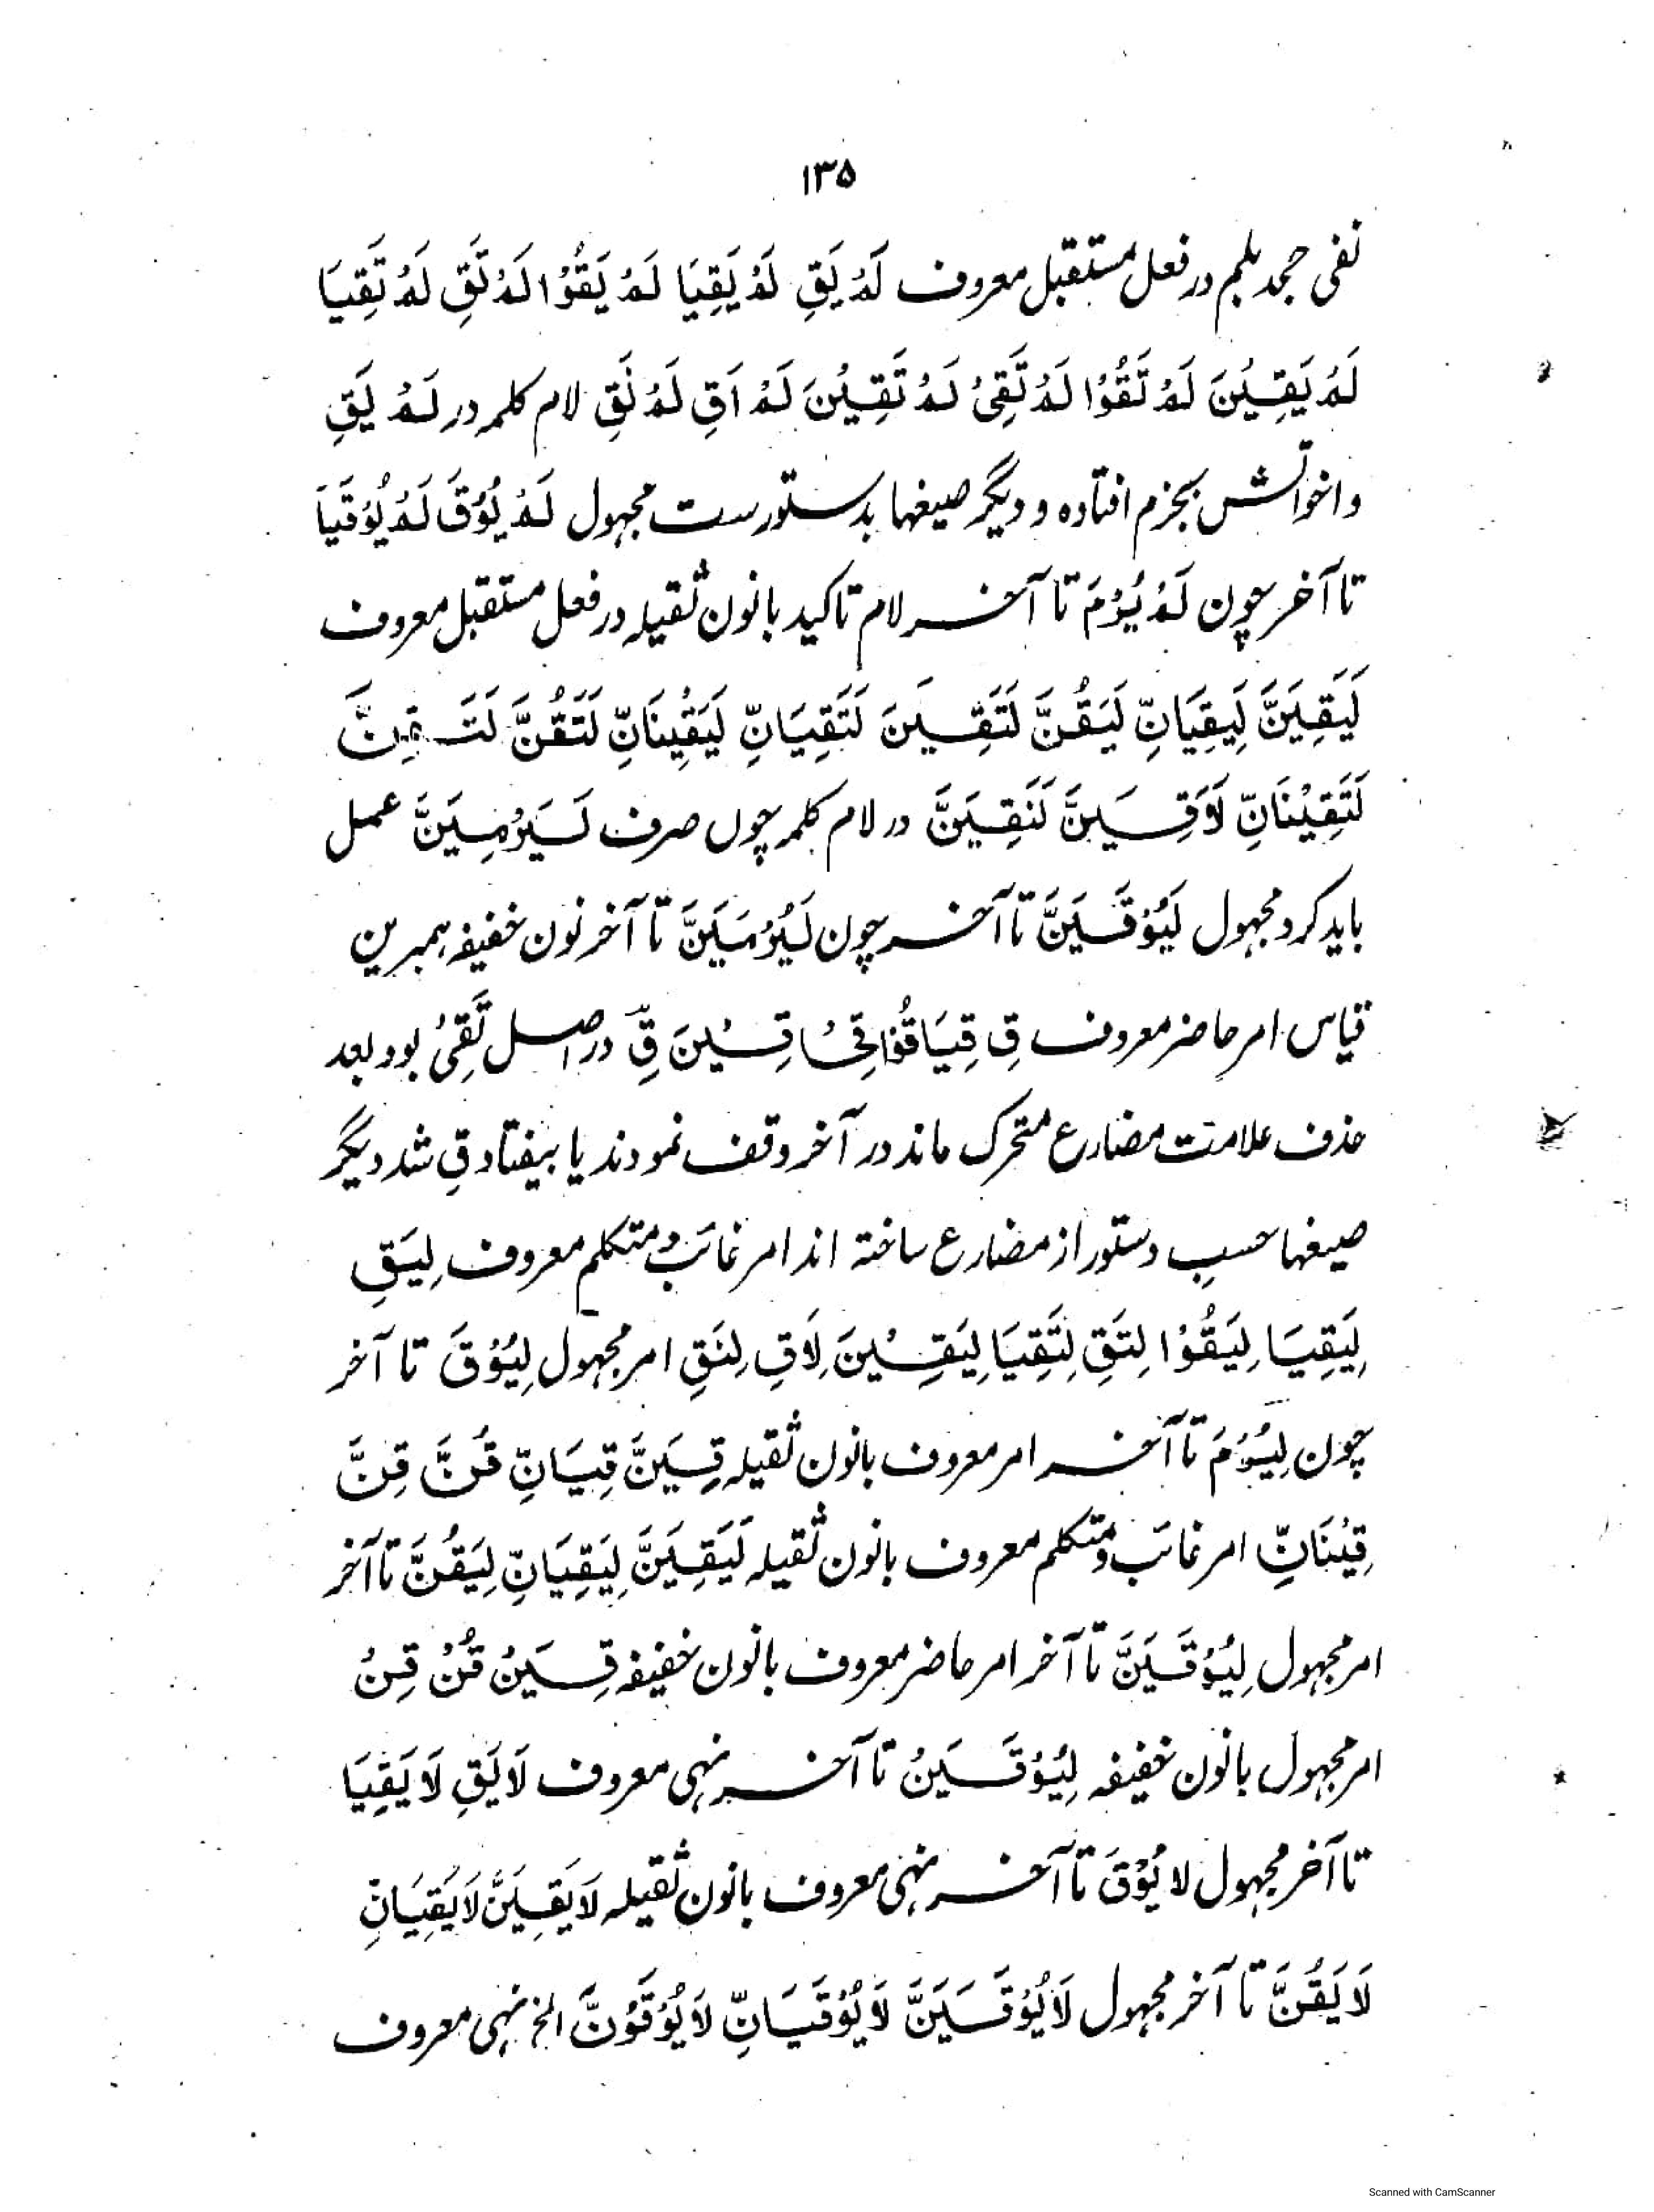 ۱۳۵
نفی جحد بلم در فعل مستقبل معروف لَمْ يَقِ لَمْ يَقِيَا لَمْ يَقُوْا لَمْ تَقِ لَمْ تَقِيَا
لَمْ يَقِيْنَ لَمْ تَقُوْا لَمْ تَقِىْ لَمْ تَقِيْنَ لَمْ اَقِ لَمْ نَقِ لام کلمہ در لَمْ يَقِ
و اخواتش بجزم افتادہ و دیگر صیغہا بدستورست مجہول لَمْ يُوْقَ لَمْ يُوْقَيَا
تا آخر چون لَمْ يُرْمَ تا آخر لام تاکید بانون ثقیلہ در فعل مستقبل معروف
لَيَقِيَنَّ لَيَقِيَانِّ لَيَقُنَّ لَتَقِيَنَّ لَتَقِيَانِّ لَيَقِيْنَانِّ لَتَقُنَّ لَتَقِنَّ
لَتَقِيْنَانِّ لَاَقِيَنَّ لَنَقِيَنَّ در لام کلمہ چوں صرف لَيَرْمِيَنَّ عمل
باید کرد مجہول لَيُوْقَيَنَّ تا آخر چون لَيُرْمَيَنَّ تا آخر نون خفیفہ ہمبرین
قیاس امر حاضر معروف قِ قِيَا قُوْا قِىْ قِيْنَ قِ در اصل تَقِىْ بود بعد
حذف علامت مضارع متحرک ماند در آخر وقف نمودند یا بیفتاد قِ شد دیگر
صیغہا حسب دستور از مضارع ساختہ اند امر غائب و متکلم معروف لِيَقِ
لِيَقِيَا لِيَقُوْا لِتَقِ لِتَقِيَا لِيَقِيْنَ لِاَقِ لِنَقِ امر مجہول لِيُوْقَ تا آخر
چون لِيُرْمَ تا آخر امر معروف بانون ثقیلہ قِيَنَّ قِيَانِّ قُنَّ قِنَّ
قِيْنَانِّ امر غائب و متکلم معروف بانون ثقیلہ لَيَقِيَنَّ لِيَقِيَانِّ لِيَقُنَّ تا آخر
امر مجہول لِيُوْقَيَنَّ تا آخر امر حاضر معروف بانون خفیفہ قِيَنْ قُنْ قِنْ
امر مجہول بانون خفیفہ لِيُوْقَيَنْ تا آخر نہی معروف لَا يَقِ لَا يَقِيَا
تا آخر مجہول لا يُوْقَ تا آخر نہی معروف بانون ثقیلہ لَا يَقِيَنَّ لَا يَقِيَانِّ
لَا يَقُنَّ تا آخر مجہول لَا يُوْقَيَنَّ لَا يُوْقَيَانِّ لَا يُوْقَوُنَّ الخ نہی معروف
Scanned with CamScanner